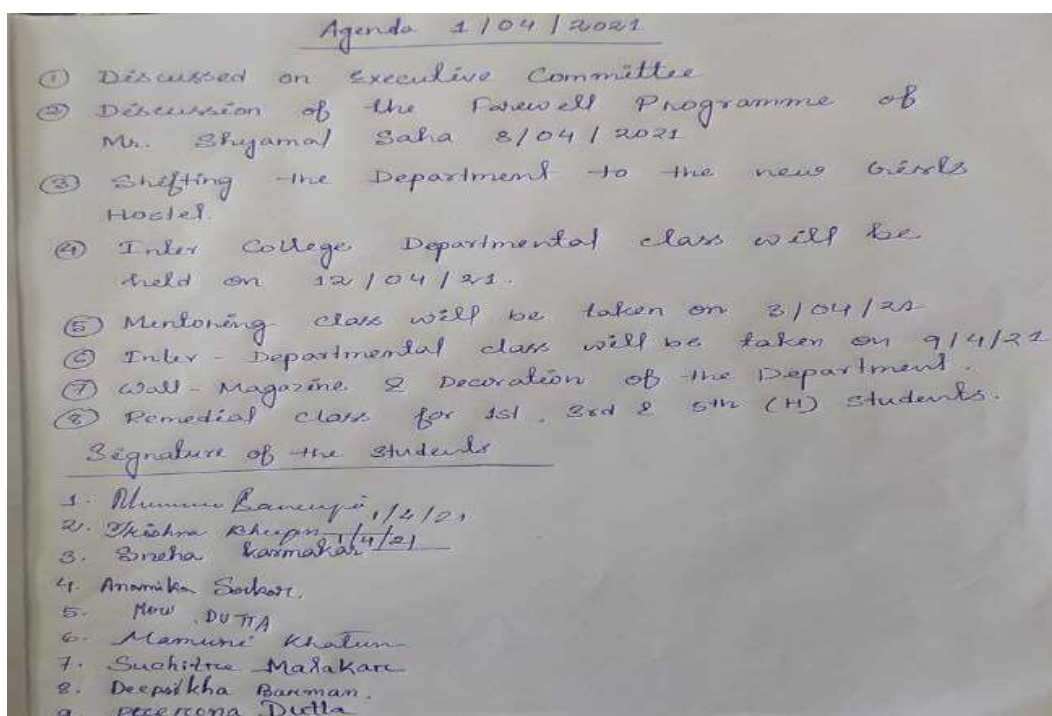 Agenda 1/04/2021
① Discussed on Executive Committee
② Discussion of the Farewell Programme of
Mr. Shyamal Saha 8/04/2021
③ Shifting the Department to the new Girls
Hostel.
④ Inter College Departmental class will be
held on 12/04/21.
⑤ Mentoring class will be taken on 8/04/21
⑥ Inter-Departmental class will be taken on 9/4/21
⑦ Wall-Magazine & Decoration of the Department.
⑧ Remedial class for 1st, 3rd & 5th (H) Students.
Signature of the Students
1. Banerji 1/4/21
2. 1/4/21
3. Sneha Karmakar
4. Anamika Sarkar.
5. Mou DUTTA
6. Mamuni Khatun
7. Suchitra Malakar
8. Deepsikha Barman.
9. Dutta